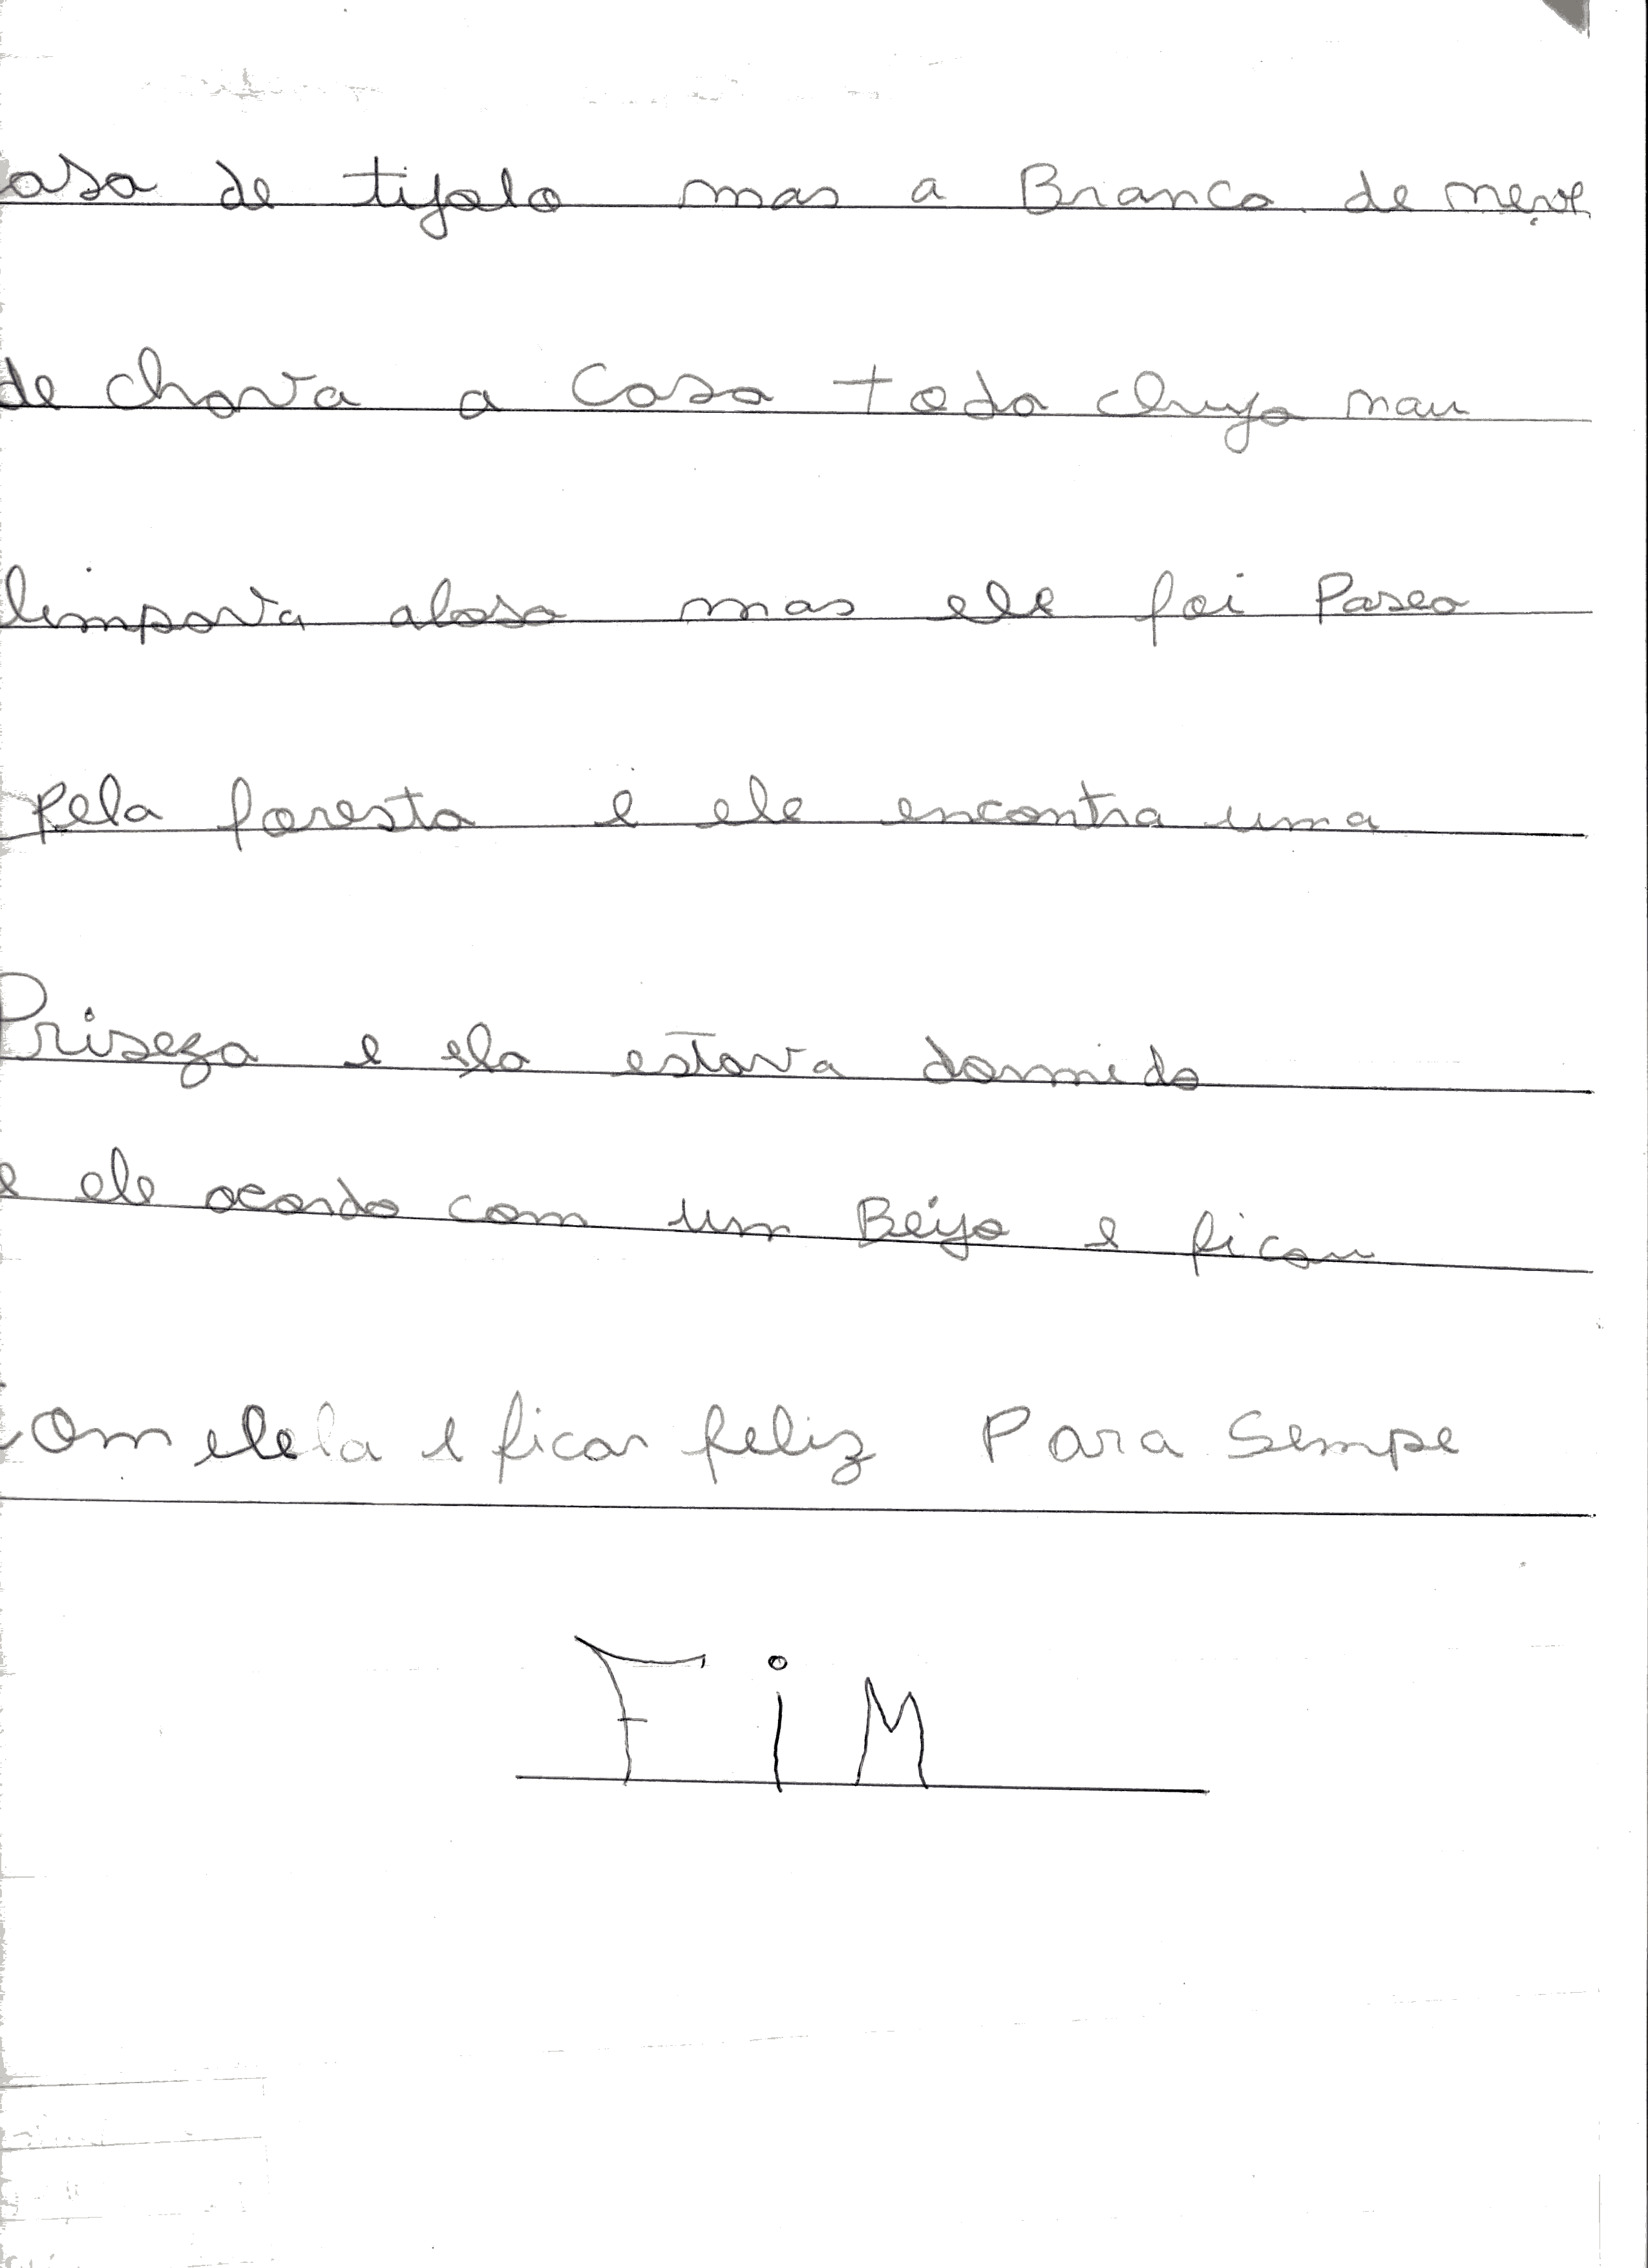 asa de tijolo mas a Branca de neve
de chava a casa toda chuja nau
limpava alosa mas ele foi Paseo
pela foresta e ele encontra uma
Priseza e ela estava dormido
e ele acordo com um Beijo e ficou
com elela e ficar feliz Para Sempe
FiM